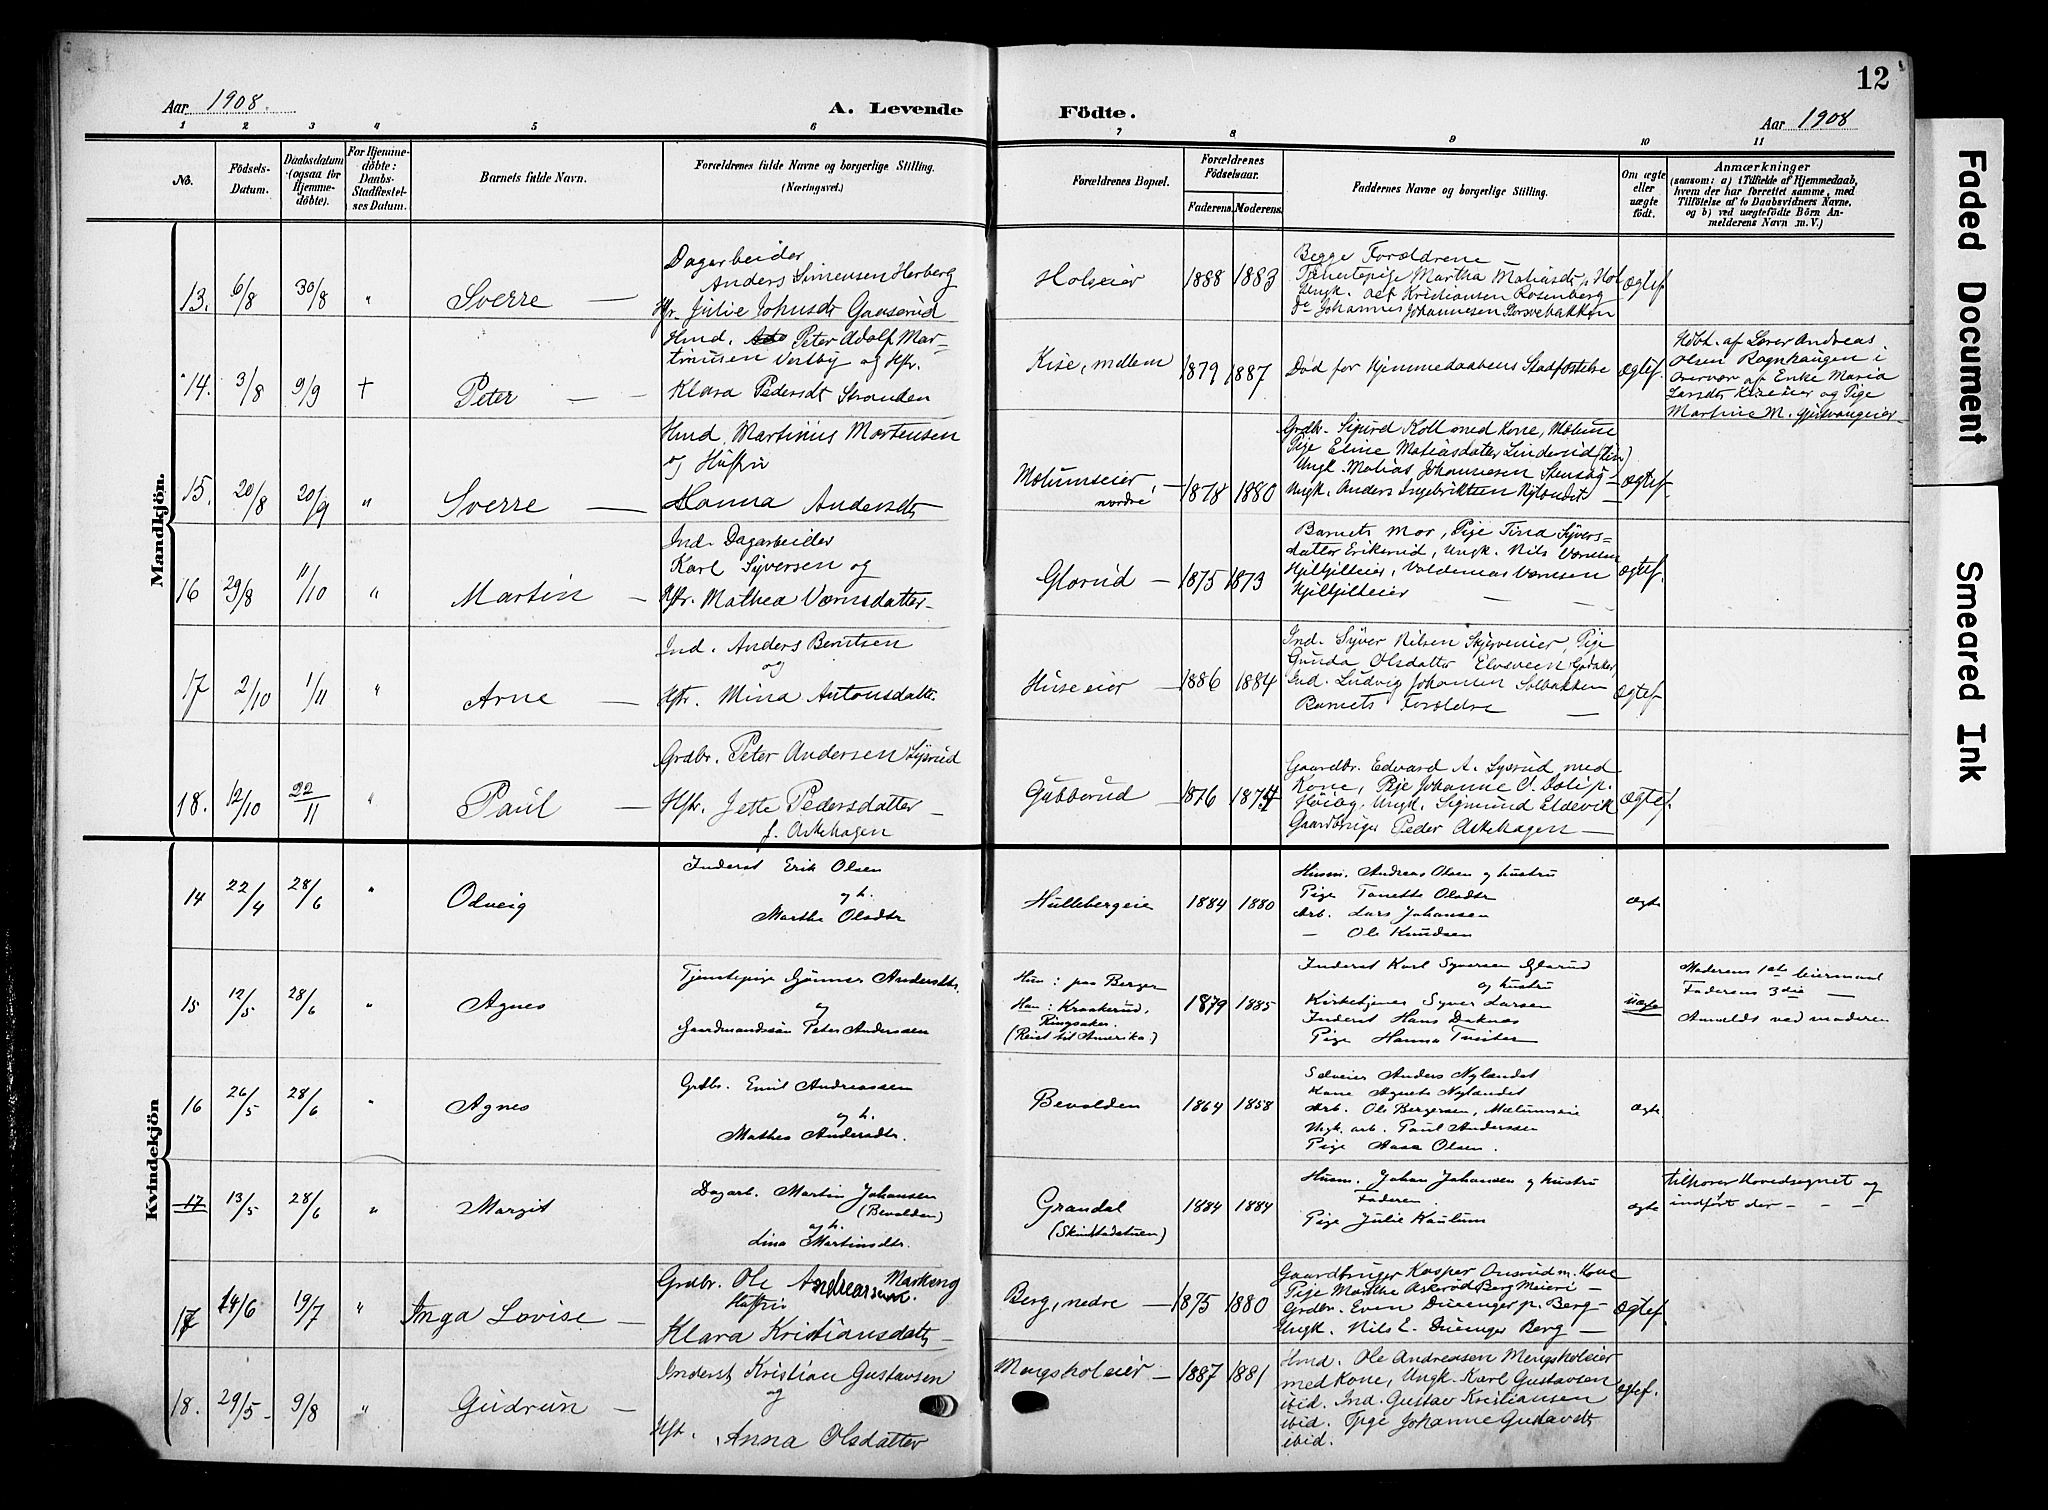 12
Aar 1908.
A. Levende
Födte.
Aar 1908
1 2 3 4 5 6 7 8 9 10 11
No.
Födsels-
Datum.
Daabsdatum
(ogsaa for
Hjemme-
döbte).
For Hjemme-
döbte:
Daabs-
Stadfæstel-
ses Datum.
Barnets fulde Navn.
Forældrenes fulde Navne og borgerlige Stilling.
(Næringsvei.)
Forældrenes Bopæl.
Forældrenes
Födselsaar.
Faderens. Moderens.
Faddernes Navne og borgerlige Stilling.
Om ægte
eller
uægte
födt.
Anmærkninger
(saasom: a) i Tilfælde af Hjemmedaab,
hvem der har forrettet samme, med
Tilföielse af to Daabsvidners Navne,
og b) ved uægtefödte Börn An-
melderens Navn m. V.)
Mandkjön.
13. 6/8 30/8 " Sverre —
Dagarbeider
Anders Simensen Herberg
Hfr. Julie Johnsdt Gaaserud
Holseier 1888 1883
Begge Forældrene —
Tjenestepige Martha Matiasdt, Hol
Ungk. Kristiansen Rosenberg
do Johannes Johannesen Korsvebakken
Ægtef
14. 3/8 9/9 † Peter — —
Hmd. Peter Adolf Mar-
tinusen Vestby og Hfr.
Klara Pedersdt Stranden
Kise, mellem 1879 1887
Død før Hjemmedaabens Stadfæstelse
Ægtef.
Hdbt. af Lærer Andreas
Olsen Rognhaugen i
Overvær af Enke Maria
Larsdt Kiseeier og Pige
Martine M.
15. 20/8 20/9 " Sverre —
Hmd. Martinius Mortensen
og Hustru
Hanna Andersdt
Mælumseier, —
nordre 1878 1880
Grdbr. Sigurd Koll med Kone, Mælum
Pige Eline Matiasdatter Linderud
Ungk. Matias Johannesen
Ungk. Anders Ingebriktsen Nylændet —
Ægtef.
16 29/8 11/10 " Martin —
Ind. Dagarbeider
Karl Syversen og
Hfr. Mathea Værnsdatter —
Glorud — 1875 1873
Barnets Mor, Pige Tina Syvers=
datter Erikerud, Ungk. Nils Værnsen
Hjilhjilteier, Valdemar Værnsen
Hjilhjilteier — —
Ægtef.
17 2/10 1/11 " Arne —
Ind. Anders Berntsen
og
Hfr. Mina Antonsdatter
Huseeier — 1886 1884
Ind. Syver Nilsen Skjerveneier, Pige
Gunda Olsdatter Elvsveen, Godaker,
Ind. Ludvig Johansen Solbakken
Barnets Forældre —
Ægtef.
18. 12/10 22/11 " Paul —
Grdbr. Peter Andersen Lysrud
Hfr. Jette Pedersdatter —
f. Askehagen
Gubberud — 1876 1874
Gaardbr. Edvard A. Lysrud med
Kone, Pige Johanne O. Doli p.
Høiag, Ungk. Sigmund Eldevik
Gaardbruger Peder Askehagen —
Ægtef.
Kvindekjön
14 22/4 28/6 " Odveig
Inderst Erik Olsen
og h.
Marthe Olsdtr
Hullebergeie 1884 1880
Husm. Andreas Olsen og hustru
Pige Tanette Olsdtr
Arb. Lars Johansen
— Ole Knudsen
Ægte
15 12/5 28/6 " Agnes
Tjenstepige Gunner Andersdtr.
og
Gaardmandssøn Peter Anderssen
Hun: paa Berger
Han: Kraakerud,
Ringsaker.
(Reist til Amerika.) 1879 1885
Inderst Karl Syversen Glorud
og hustru
Kirketjener Syver Larsen
Inderst Hans Doknæs
Pige Hanna Tveiter
uægte
Moderens 1ste leiermaal
Faderens 3die —
Anmeldt ved moderen
16 26/5 28/6 " Agnes
Grdbr. Emil Andreassen
og h.
Mathea Andersdtr.
Bevolden 1864 1858
Selveier Anders Nylændet
Kone Agnete Nylændet
Arb. Ole Bergersen, Mælumseie
Ungk. arb. Paul Anderssen
Pige Aase Olsen.
Ægte
17 13/5 28/6 " Margit
Dagarb. Martin Johansen
(Bevolden)
og h.
Lina Martinsdtr.
Grandal
(Skindstadstuen) 1884 1884
Husm. Johan Johansen og hustru
Faderen
Pige Julie Kaulum
Ægte
tilhører Hovedsognet og
indført der — — —
17 14/6 19/7 " Inga Lovise —
Grdbr. Ole Andreassen Markeng
Hustru
Klara Kristiansdatter —
Berg, nedre — 1875 1880
Gaardbruger Kasper Onsrud m. Kone
Pige Marthe Askerød Berg Meieri —
Grdbr. Even Duenger p. Berg —
Ungk. Nils E. Duenger Berg —
Ægtef.
18. 29/5 9/8 " Gudrun —
Inderst Kristian Gustavsen
og
Hfr. Anna Olsdatter
Mengsholeier — 1887 1881
Hmd. Ole Andreasen Mengsholeier
med Kone, Ungk. Karl Gustavsen
ibid. Ind. Gustav Kristiansen
ibid. Pige Johanne Gustavdt
ibid.
Ægtef.
Faded Document
Smeared Ink